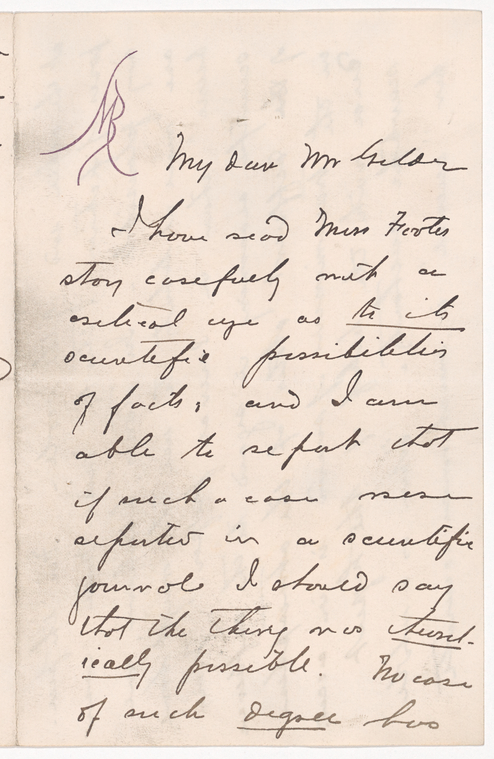 My dear Mr Gilder
I have read Miss Footes
story carefully with a
critical eye as to its
scientific possibilities
of facts; and I am
able to report that
if such a case were
reported in a scientific
journal I should say
that the thing was theoret-
ically possible. No case
of such degree has